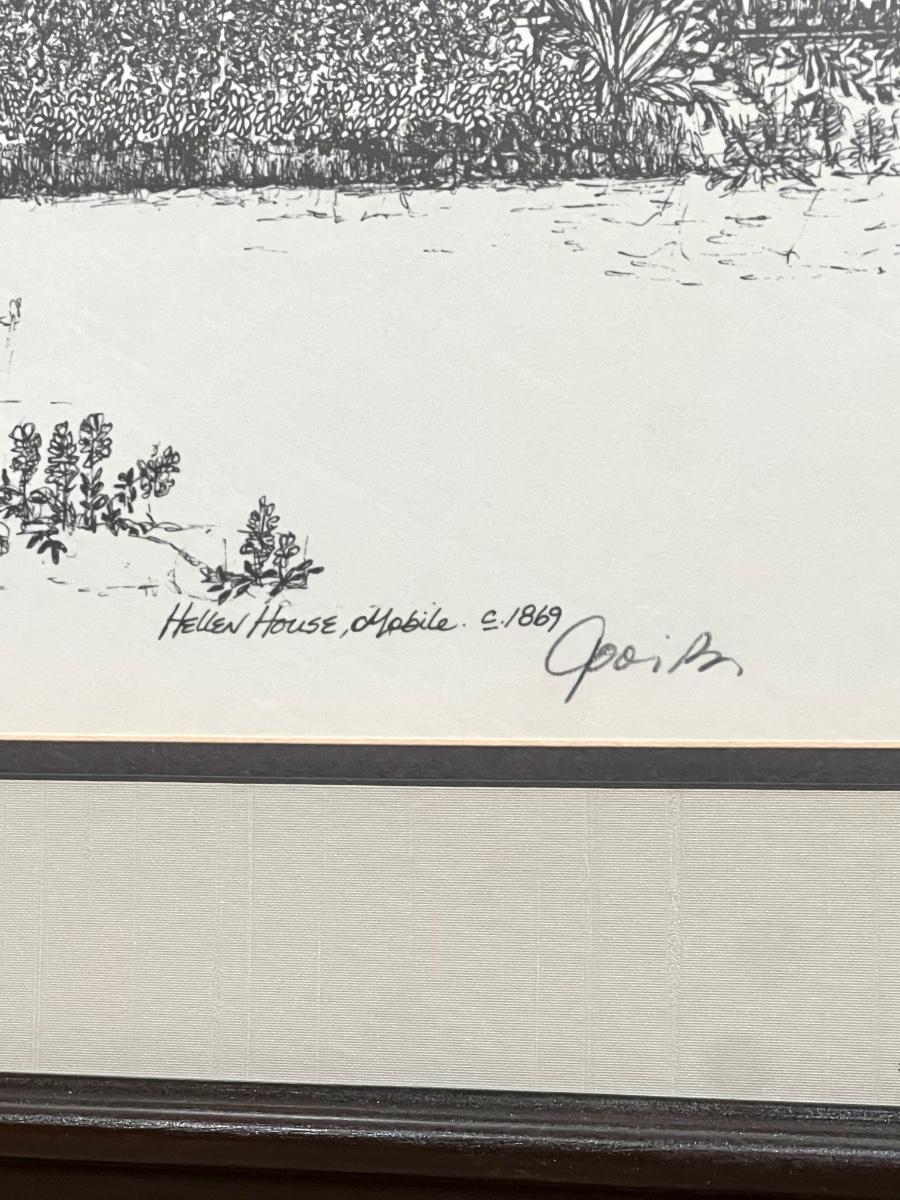 Hellen House, Mobile. c.1869